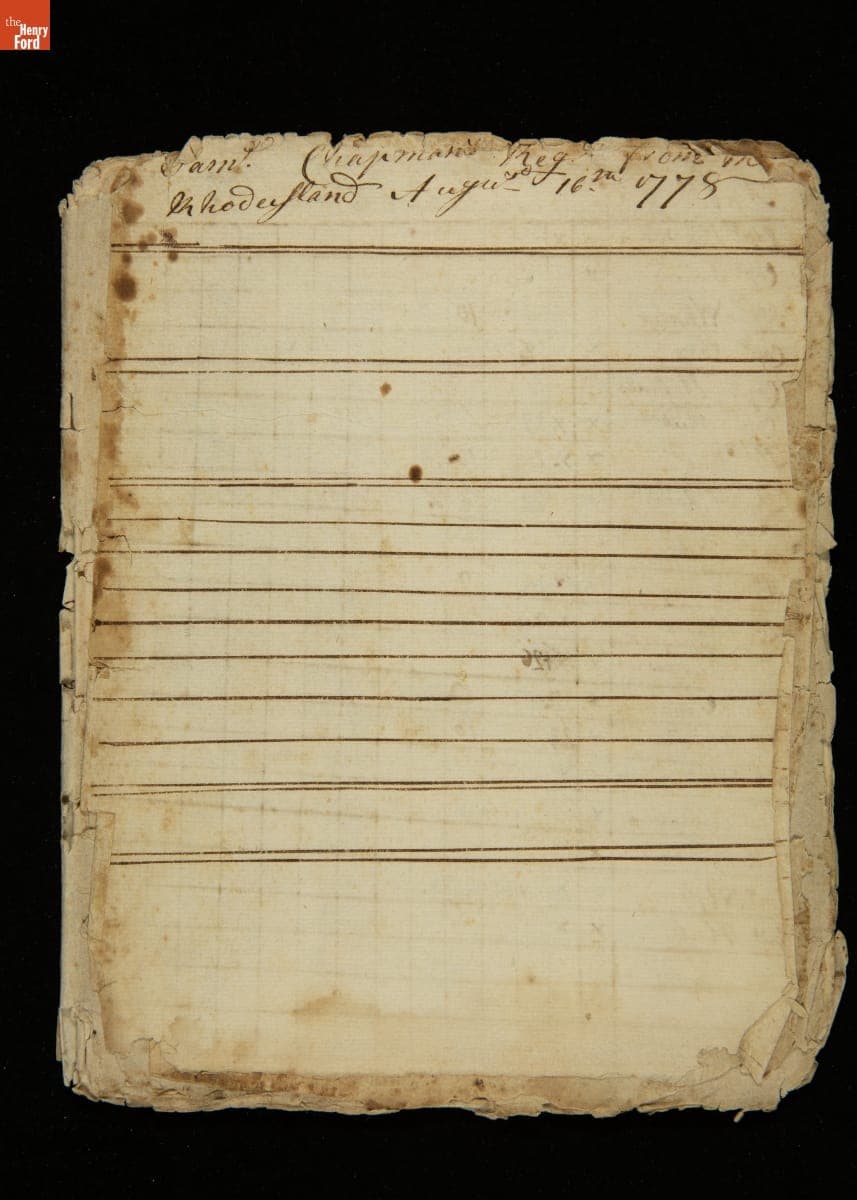 the
Henry
Ford
Samˡ. Chapman's Regᵗ from
Rhodeysland Augusᵗ 16 1778